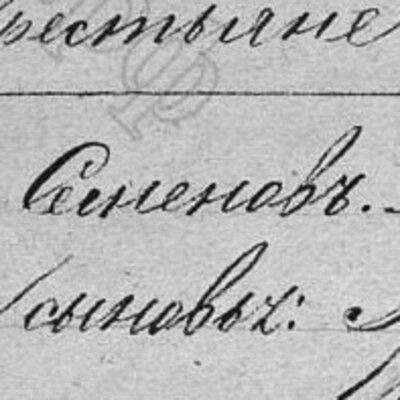 крестьяне
Семеновъ.
сыновья: